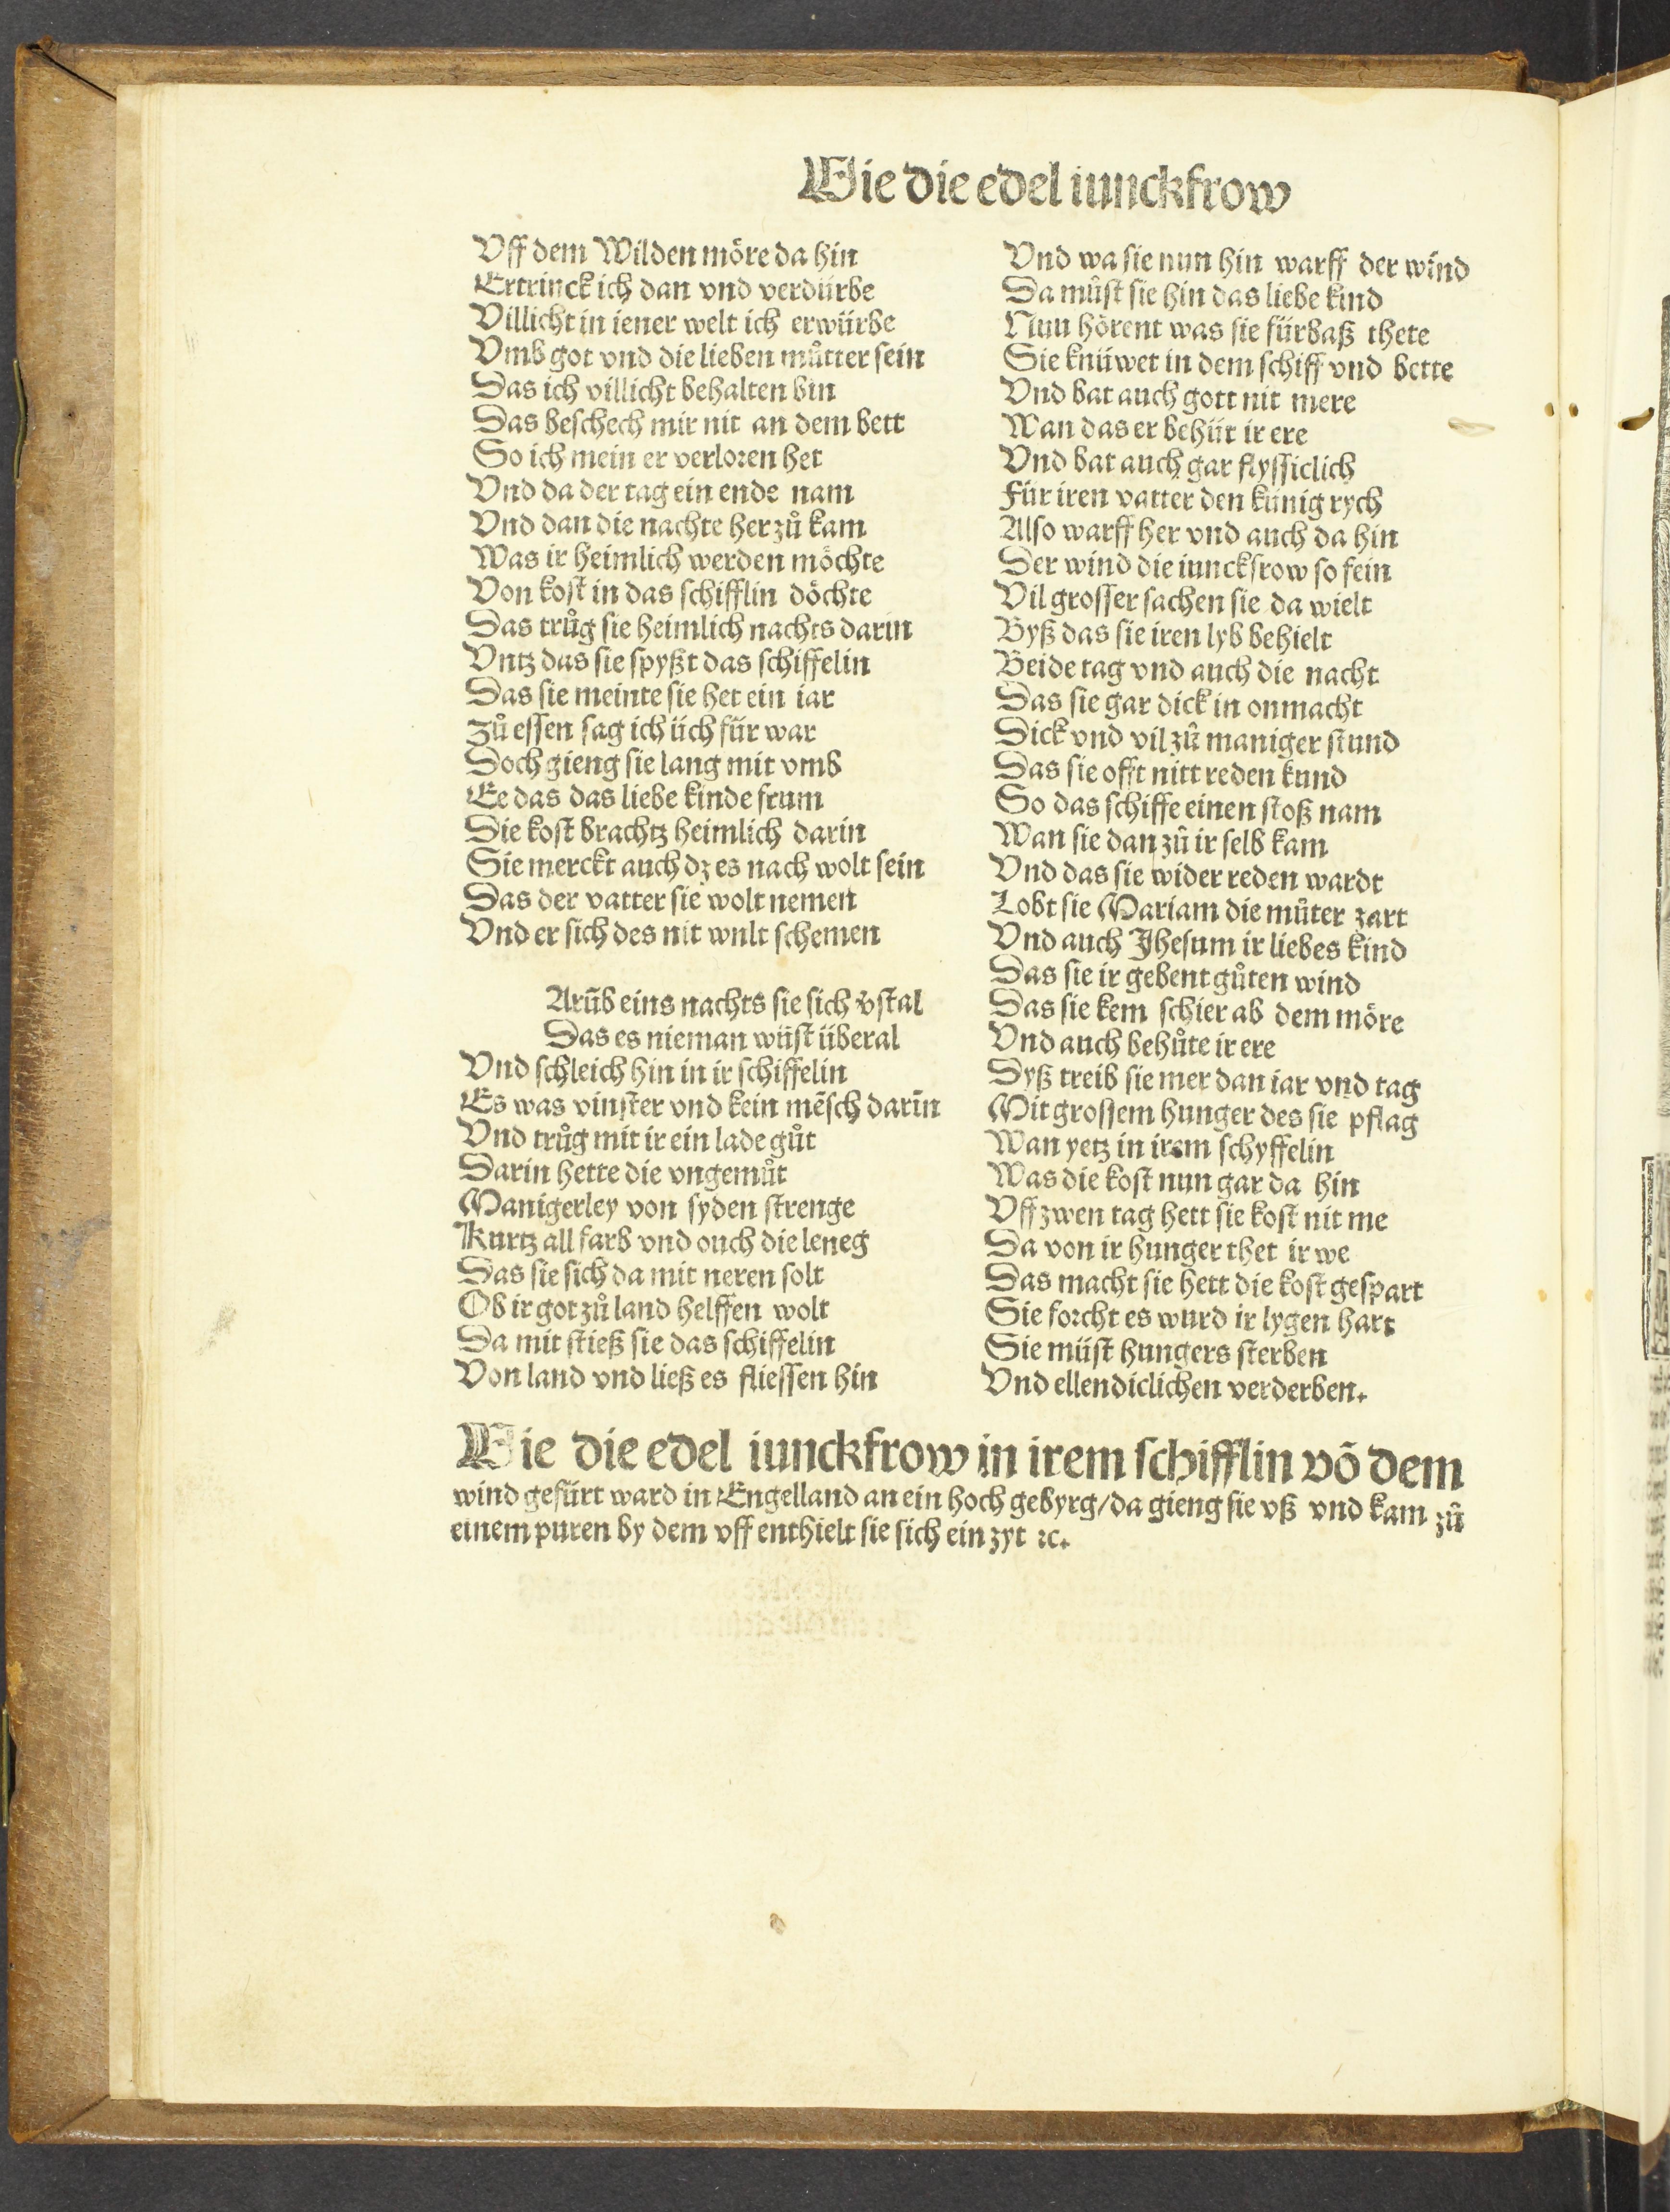 Wie die edel iunckfrow
Vff dem Wilden möre da hin
Ertrinck ich dan vnd verdürbe
Villicht in iener welt ich erwürbe
Vmb got vnd die lieben můtter sein
Das ich villicht behalten bin
Das beschech mir nit an dem bett
So ich mein er verloren het
Vnd da der tag ein ende nam
Vnd dan die nachte her zů kam
Was ir heimlich werden möchte
Von kost in das schifflin döchte
Das trůg sie heimlich nachts darin
Vntz das sie spyßt das schiffelin
Das sie meinte sie het ein iar
Zů essen sag ich üch für war
Doch gieng sie lang mit vmb
Ee das das liebe kinde frum
Die kost brachtz heimlich darin
Sie merckt auch dz es nach wolt sein
Das der vatter sie wolt nemen
Vnd er sich des nit wnlt schemen
Arūb eins nachts sie sich v̄stal
Das es nieman wüst überal
Vnd schleich hin in ir schiffelin
Es was vinster vnd kein mēsch darīn
Vnd trůg mit ir ein lade gůt
Darin hette die vngemůt
Manigerley von syden strenge
Kurtz all farb vnd ouch die leneg
Das sie sich da mit neren solt
Ob ir got zů land helffen wolt
Da mit stieß sie das schiffelin
Von land vnd ließ es fliessen hin
Vnd wa sie nun hin warff der wind
Da můst sie hin das liebe kind
Nuu hörent was sie fürbaß thete
Sie knüwet in dem schiff vnd bette
Vnd bat auch gott nit mere
Wan das er behüt ir ere
Vnd bat auch gar flyssiclich
Für iren vatter den künig rych
Also warff her vnd auch da hin
Der wind die iunckfrow so fein
Vil grosser sachen sie da wielt
Byß das sie iren lyb behielt
Beide tag vnd auch die nacht
Das sie gar dick in onmacht
Dick vnd vil zů maniger stund
Das sie offt nitt reden kund
So das schiffe einen stoß nam
Wan sie dan zů ir selb kam
Vnd das sie wider reden wardt
Lobt sie Mariam die můter zart
Vnd auch Jhesum ir liebes kind
Das sie ir gebent gůten wind
Das sie kem schier ab dem möre
Vnd auch behůte ir ere
Dyß treib sie mer dan iar vnd tag
Mit grossem hunger des sie pflag
Wan yetz in irem schyffelin
Was die kost nun gar da hin
Vff zwen tag hett sie kost nit me
Da von ir hunger thet ir we
Das macht sie hett die kost gespart
Sie forcht es wurd ir lygen hart
Sie müst hungers sterben
Vnd ellendiclichen verderben.
Wie die edel iunckfrow in irem schifflin vō dem
wind gefürt ward in Engelland an ein hoch gebyrg/da gieng sie vß vnd kam zů
einem puren by dem vff enthielt sie sich ein zyt ꝛc.